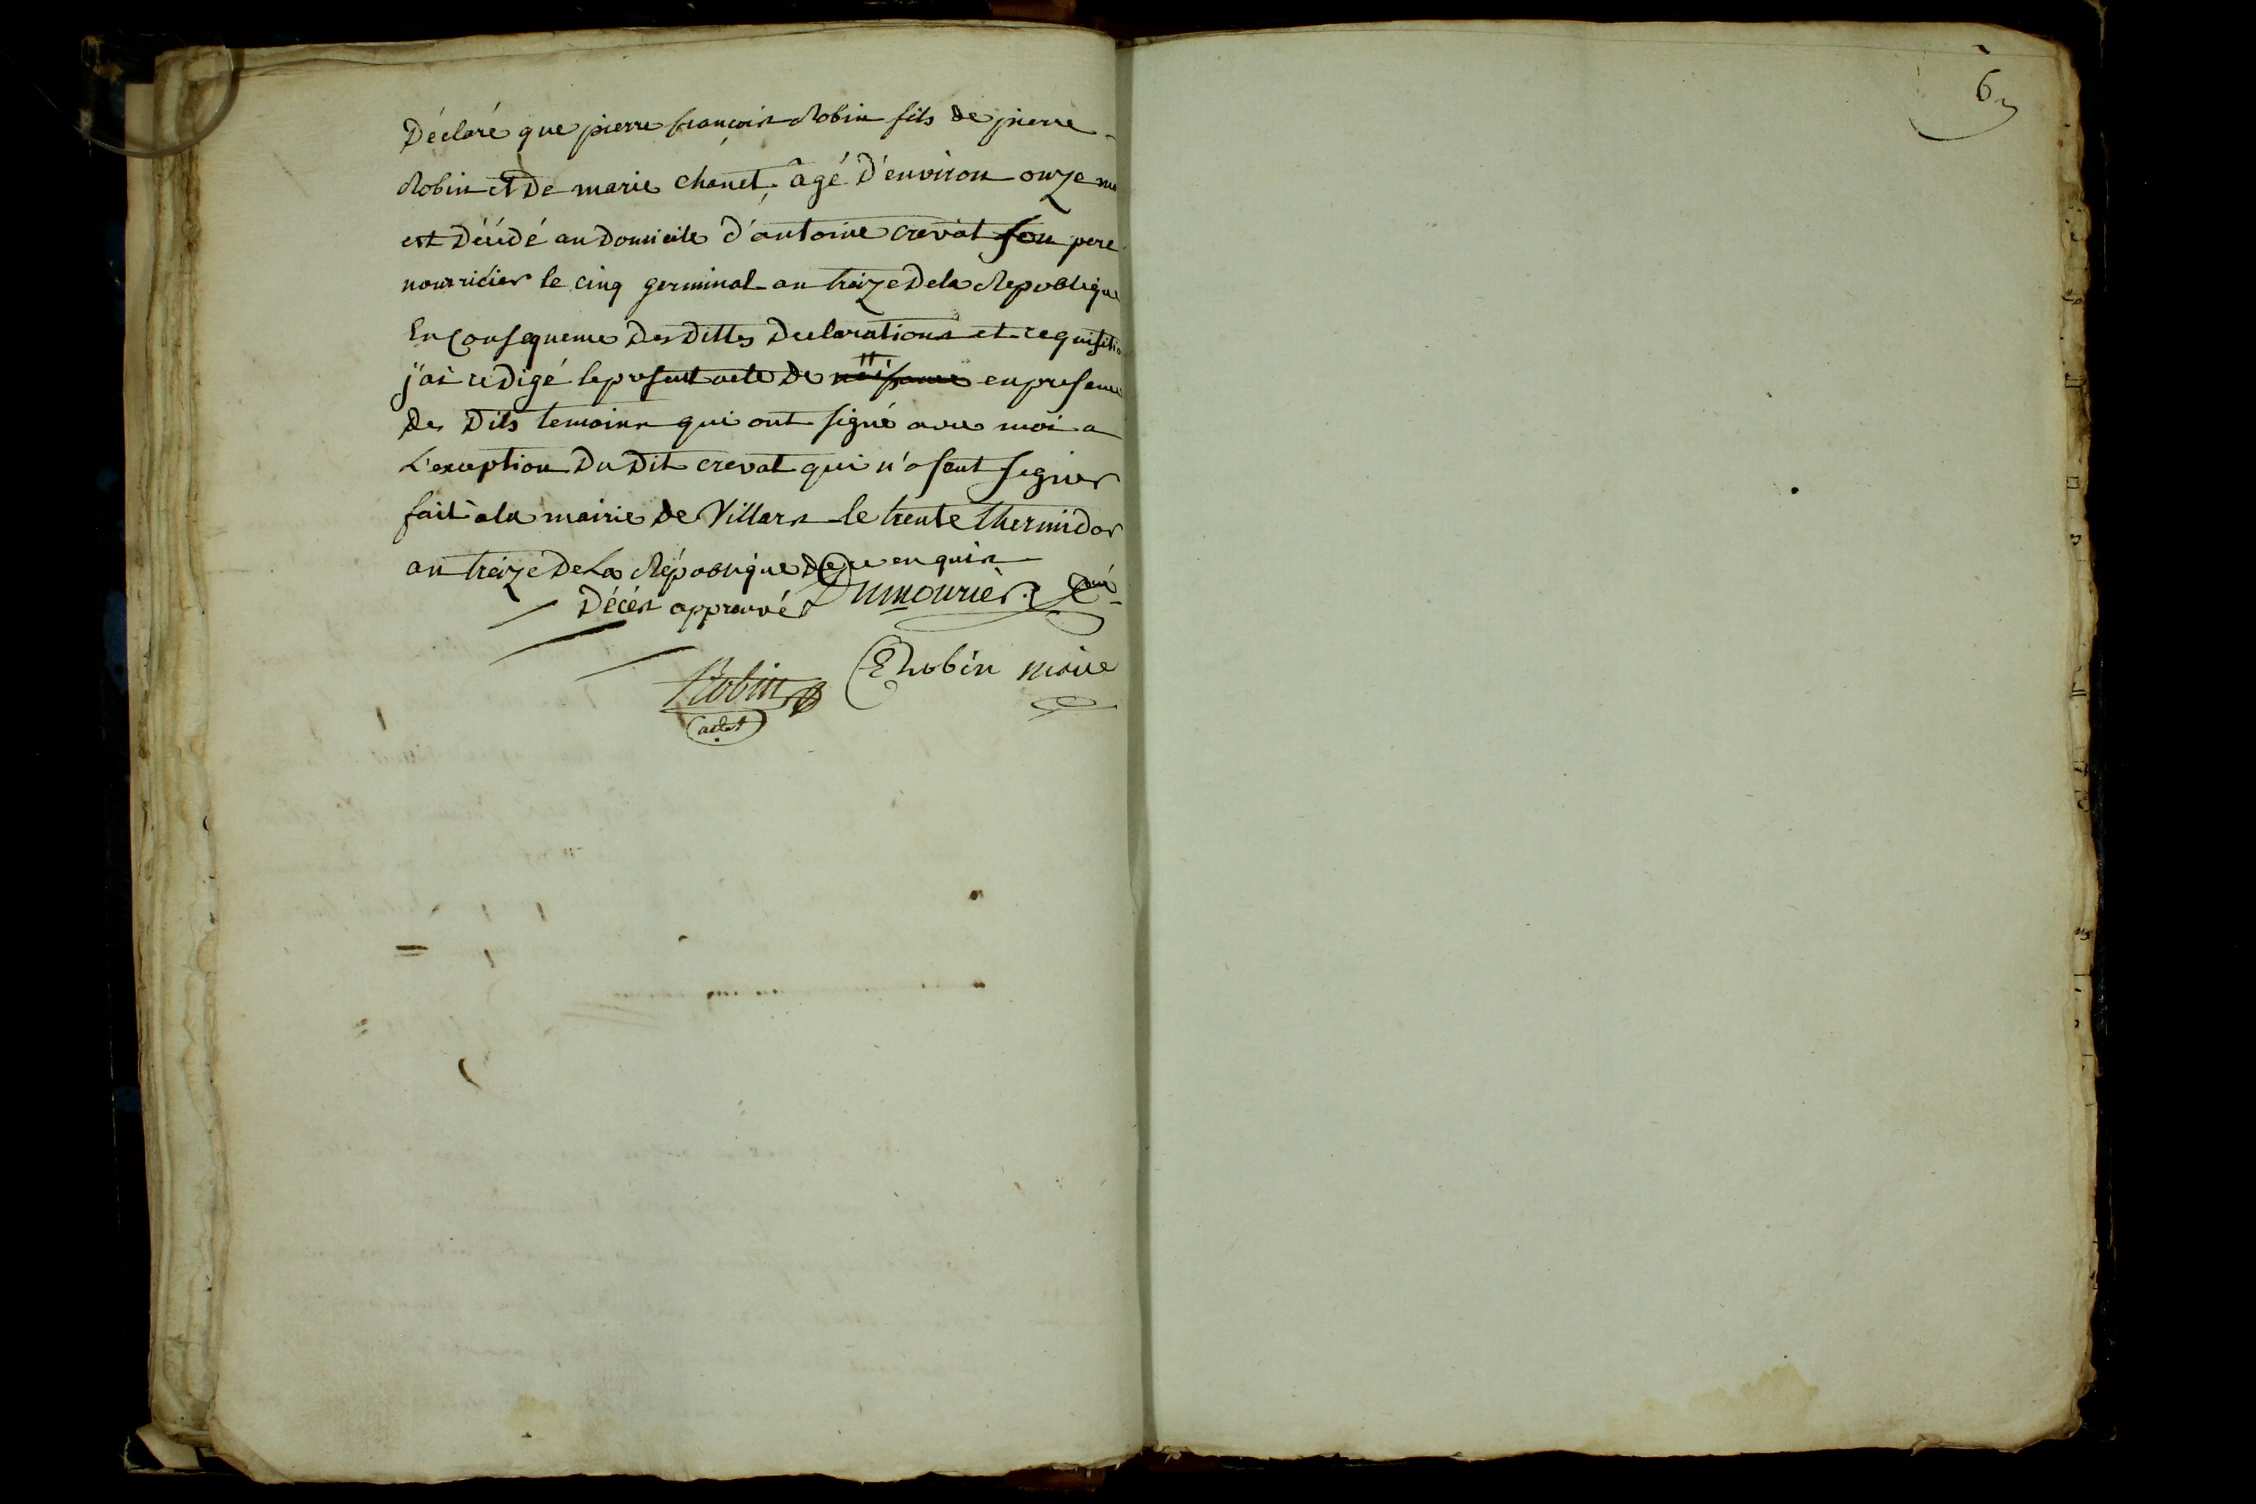 Déclaré que pierre françois Robin fils de pierre
Robin et De marie chanet, âgé D'environ onze
est Décidé au Domicile d'antoine crevat son pere
nourricier le cinq germinal an treize De la Republique
En Consequence Des Dittes Declarations et requisitio
j'ai redigé le present acte De naissance en presence
Des Dits temoins qui ont signé avec moi a
L'exception Du Dit crevat qui n'a seut signer
fait a la mairie de Villars le trente thermidor
an treize De La République De ce enquis
Décés approuvé Dumourier
Robin E Robin maire
6